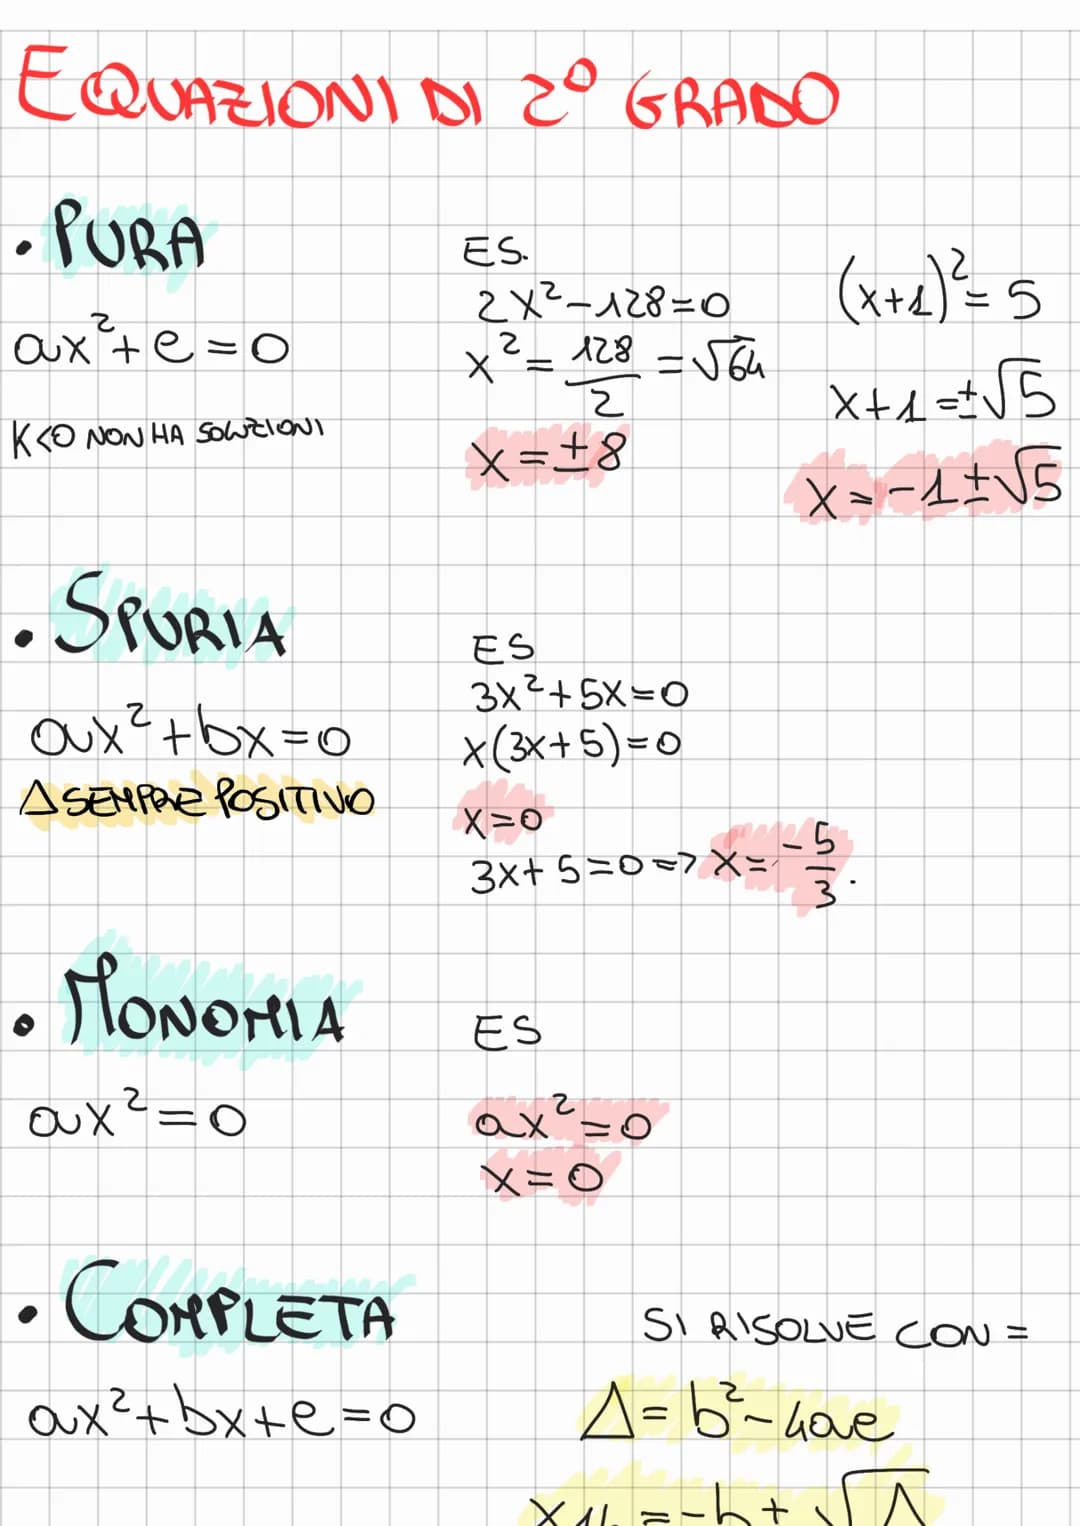 EQUAZIONI DI 2° GRADO
• PURA
ax²+c=0
K<0 NON HA SOLUZIONI
ES.
2x²-128=0
x²=128/2=√64
x=±8
(x+1)²=5
x+1=±√5
x=-1±√5
• SPURIA
ax²+bx=0
Δ SEMPRE POSITIVO
ES
3x²+5x=0
x(3x+5)=0
x=0
3x+5=0=> x=-5/3.
• MONOMIA
ax²=0
ES
ax²=0
x=0
• COMPLETA
ax²+bx+c=0
SI RISOLVE CON =
Δ=b²-4ac